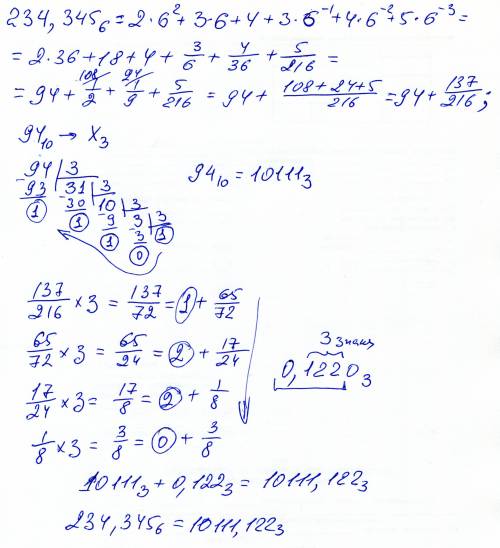 234,345₆ = 2·6² + 3·6 + 4 + 3·6⁻¹ + 4·6⁻² + 5·6⁻³ =
= 2·36 + 18 + 4 + 3/6 + 4/36 + 5/216 =
= 94 + 108/ 1/2 + 24/ 1/9 + 5/216 = 94 + (108+24+5)/216 = 94 + 137/216;
94₁₀ → X₃
94 | 3
-93 31 | 3 94₁₀ = 10111₃
1 -30 10 | 3
1 -9 3 | 3
1 -3 1
0
137/216 × 3 = 137/72 = 1 + 65/72
65/72 × 3 = 65/24 = 2 + 17/24
3 знака
17/24 × 3 = 17/8 = 2 + 1/8 0,1220₃
1/8 × 3 = 3/8 = 0 + 3/8
10111₃ + 0,122₃ = 10111,122₃
234,345₆ = 10111,122₃